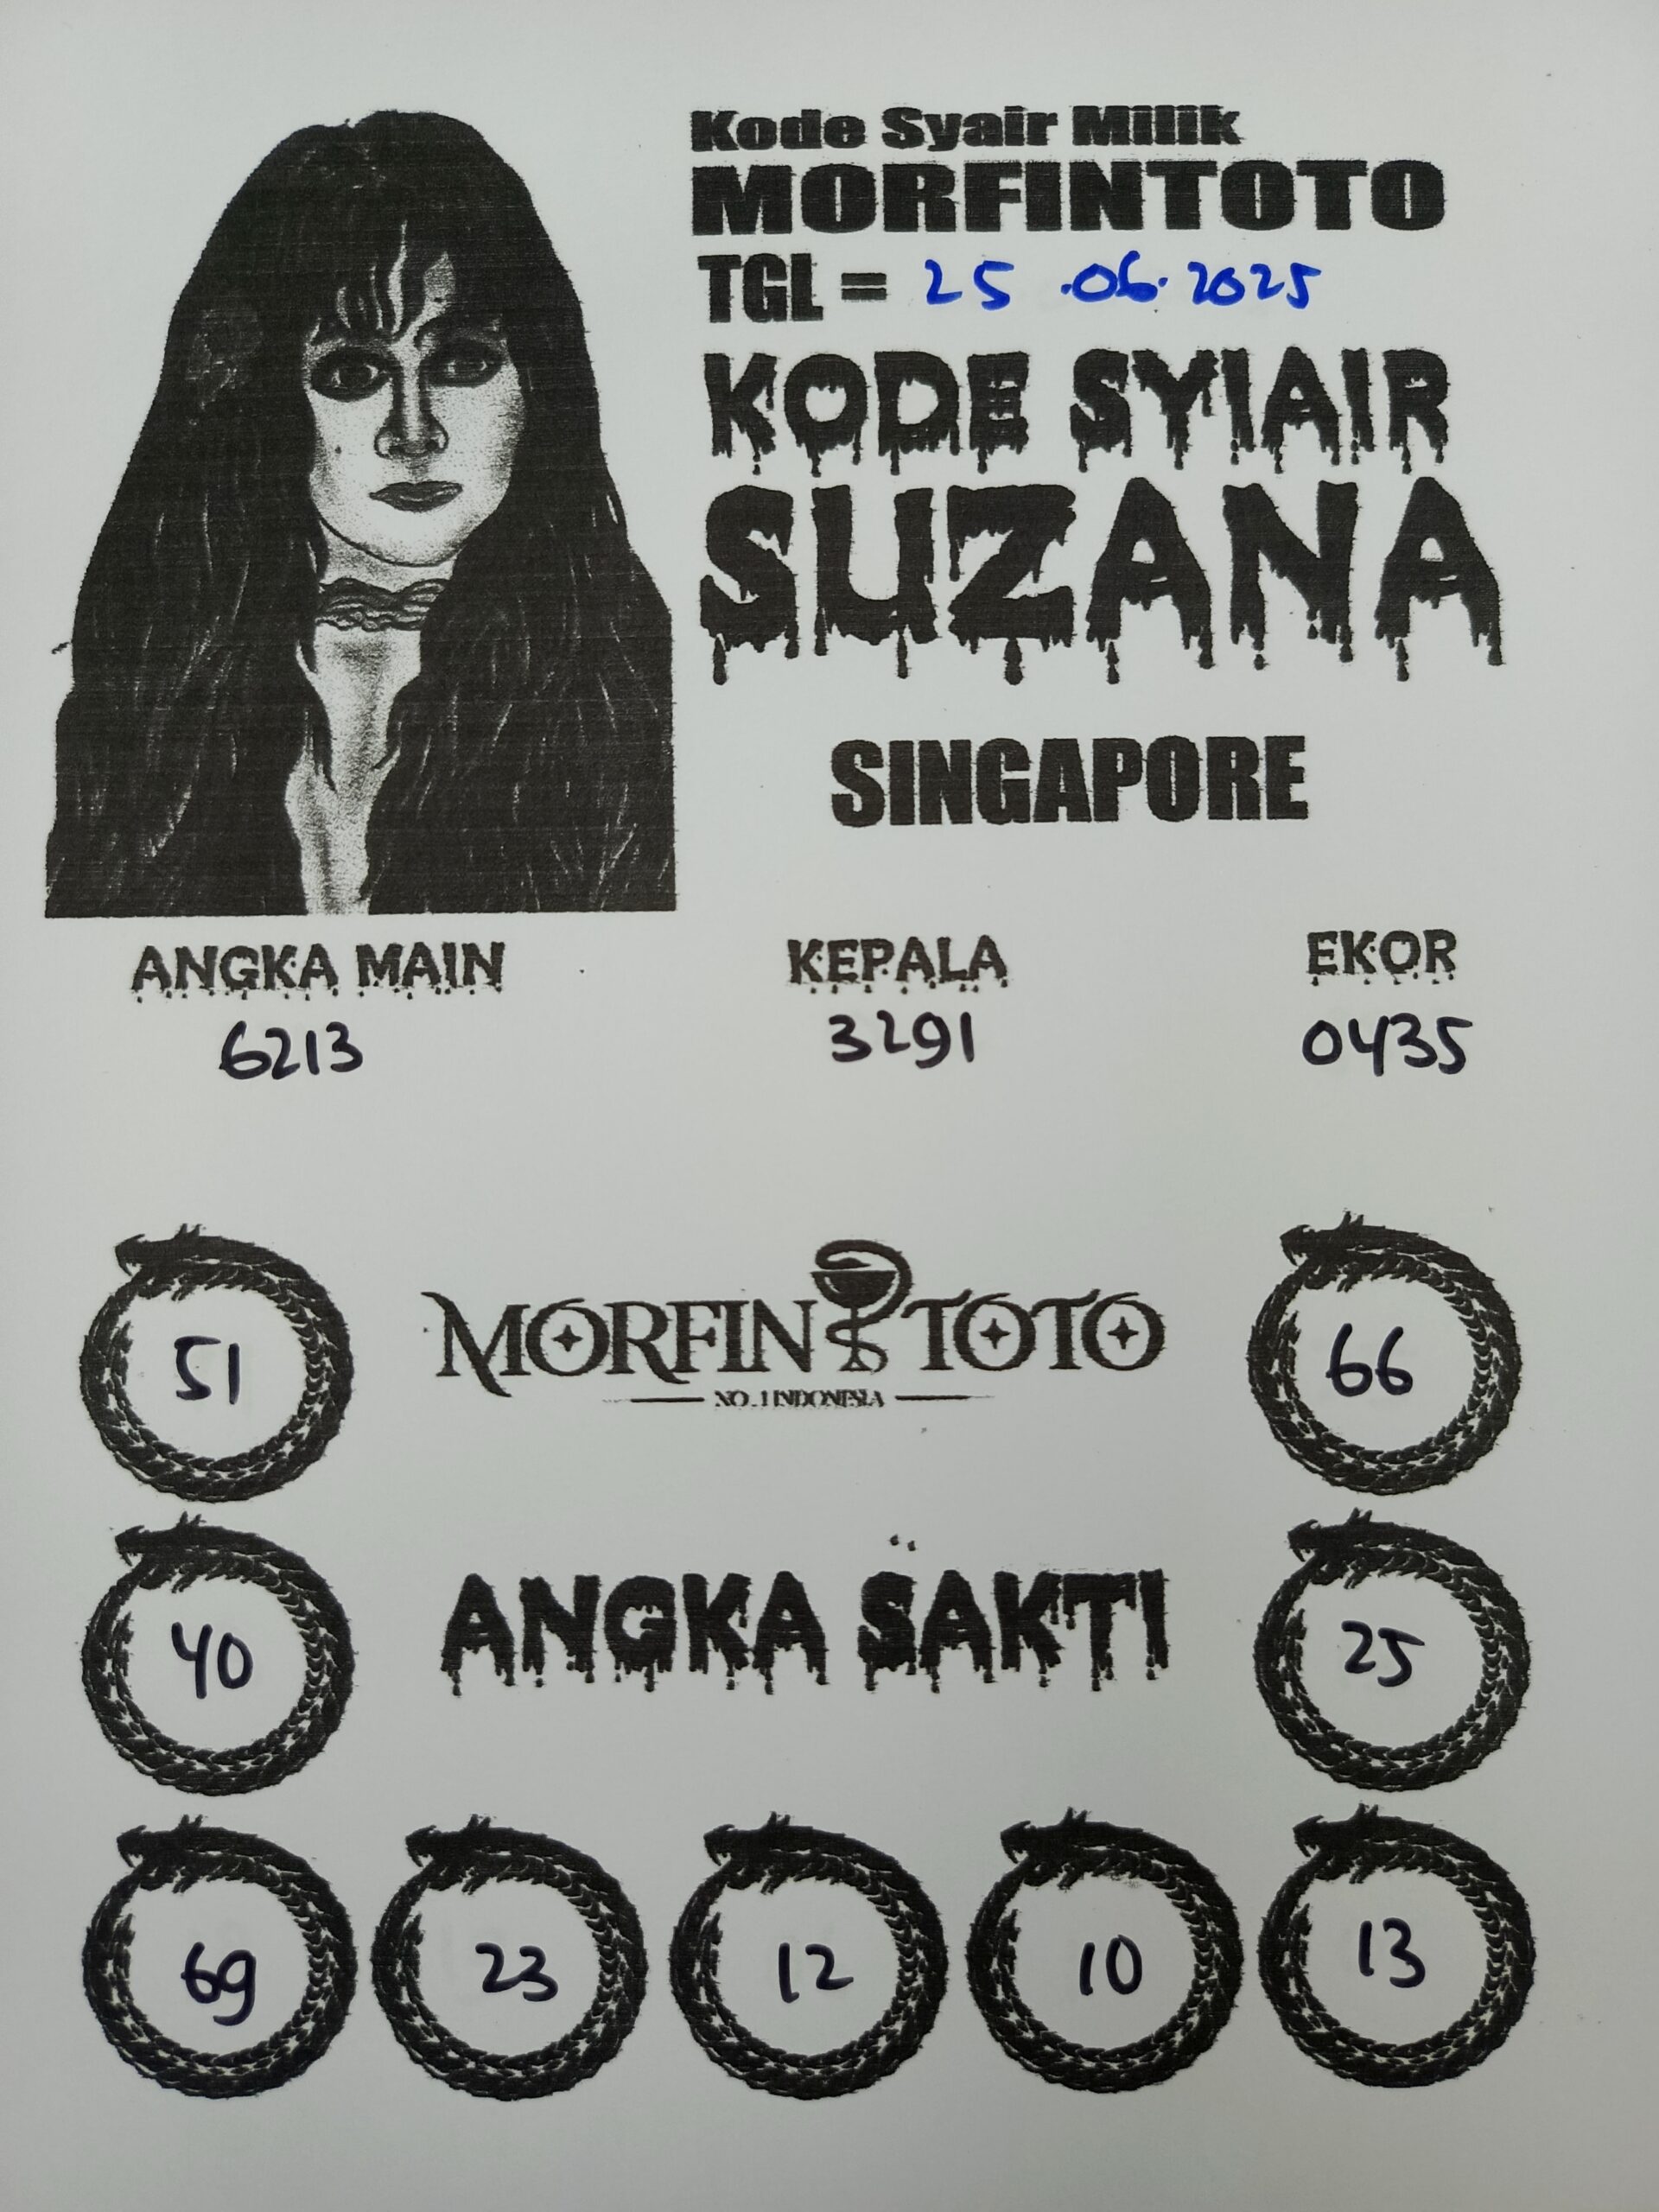 Kode Syair Milik
MORFINTOTO
TGL = 25 .06.2025
KODE SYIAIR
SUZANA
SINGAPORE
ANGKA MAIN KEPALA EKOR
6213 3291 0435
51 MORFIN TOTO 66
NO.1 INDONESIA
40 ANGKA SAKTI 25
69 23 12 10 13